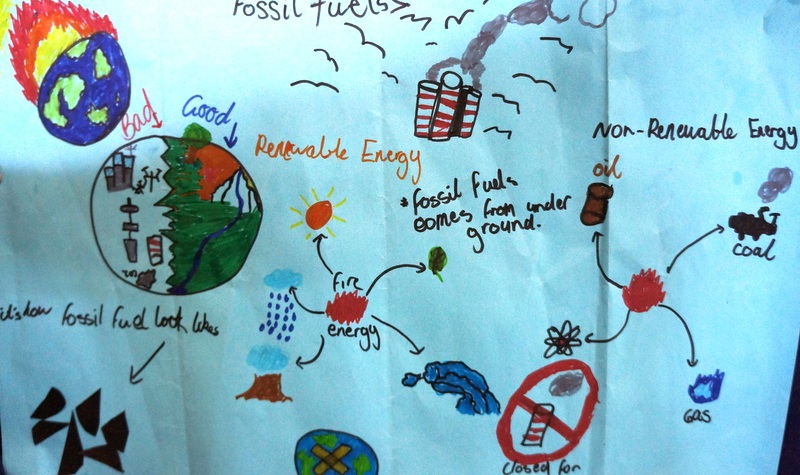 Fossil fuels
Bad
Good
Renewable Energy
Non-Renewable Energy
oil
* Fossil fuels
comes from under
ground.
coal
fire
energy
Fossil Fuel look likes
Gas
closed for